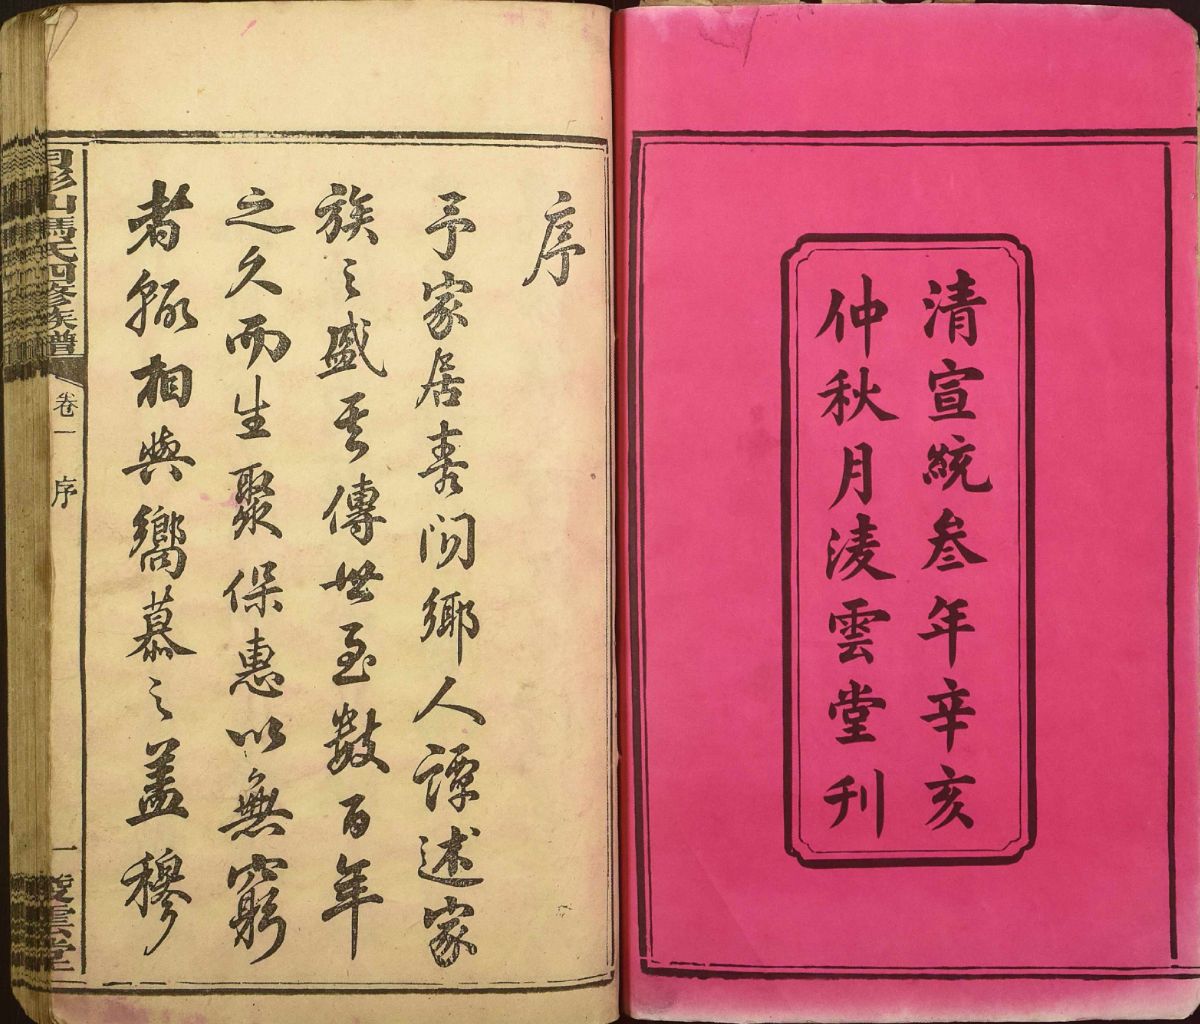 清宣統叁年辛亥
仲秋月淩雲堂刊
序
予家居喜聞鄉人譚述家
族之盛其傳世至數百年
之久而生聚保惠以無窮
者輒相與嚮慕之蓋穆
山馮氏四修族譜
卷一
序
一
淩雲堂